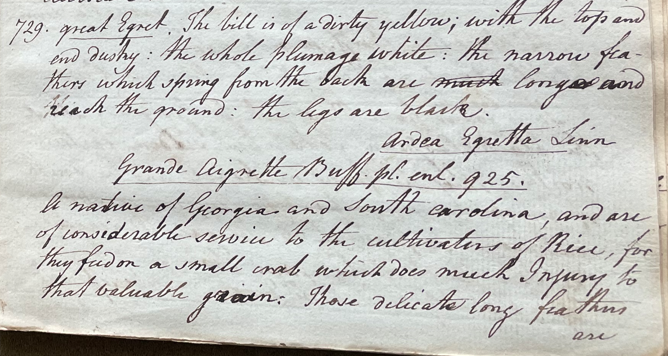 729. great Egret. The bill is of a dirty yellow; with the top and
end dusky: the whole plumage white: the narrow fea-
thers which spring from the back are much long and
reach the ground: the legs are black.
Ardea Egretta Linn
Grande Aigrette Buff. pl. enl. 925.
A native of Georgia and South carolina, and are
of considerable service to the cultivators of Rice, for
they feed on a small crab which does much Injury to
that valuable grain: Those delicate long feathers
are